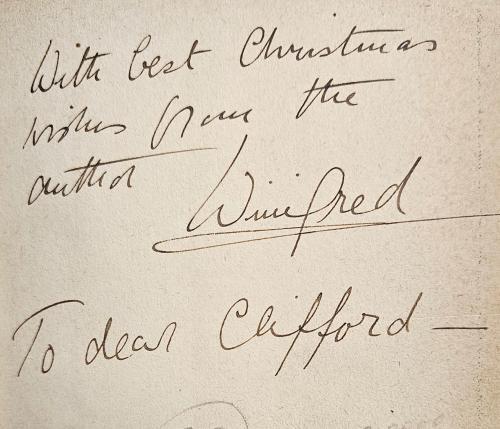 With best Christmas
wishes from the
author
Winifred
To dear Clifford —